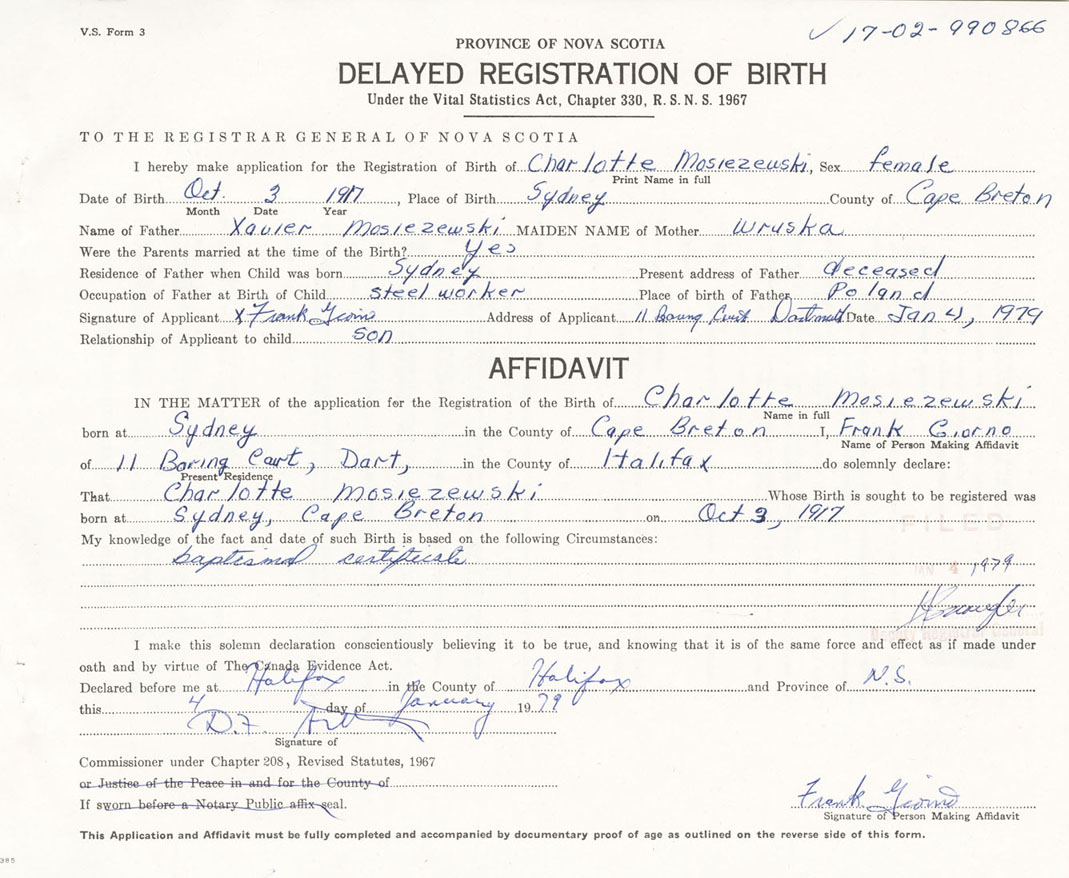 V.S. Form 3
✓ 17-02-990866
PROVINCE OF NOVA SCOTIA
DELAYED REGISTRATION OF BIRTH
Under the Vital Statistics Act, Chapter 330, R.S.N.S. 1967
TO THE REGISTRAR GENERAL OF NOVA SCOTIA
I hereby make application for the Registration of Birth of Charlotte Mosiezewski, Sex female
Print Name in full
Date of Birth Oct. 3 1917, Place of Birth Sydney County of Cape Breton
Month Date Year
Name of Father Xavier Mosiezewski MAIDEN NAME of Mother Wruska
Were the Parents married at the time of the Birth? Yes
Residence of Father when Child was born Sydney Present address of Father deceased
Occupation of Father at Birth of Child steel worker Place of birth of Father Poland
Signature of Applicant X Frank Address of Applicant 11 Court Date Jan 4, 1979
Relationship of Applicant to child son
AFFIDAVIT
IN THE MATTER of the application for the Registration of the Birth of Charlotte Mosiezewski
Name in full
born at Sydney in the County of Cape Breton I, Frank Giorno
Name of Person Making Affidavit
of 11 Court, Dart, in the County of Halifax do solemnly declare:
Present Residence
That Charlotte Mosiezewski Whose Birth is sought to be registered was
born at Sydney, Cape Breton on Oct 3, 1917
FILED
My knowledge of the fact and date of such Birth is based on the following Circumstances:
baptismal certificate
JAN 4 1979
Deputy Registrar General
I make this solemn declaration conscientiously believing it to be true, and knowing that it is of the same force and effect as if made under
oath and by virtue of The Canada Evidence Act.
Declared before me at Halifax in the County of Halifax and Province of N.S.
this 4 day of January 19 79
D.F.
Signature of
Commissioner under Chapter 208, Revised Statutes, 1967
or Justice of the Peace in and for the County of
If sworn before a Notary Public affix seal.
Frank
Signature of Person Making Affidavit
This Application and Affidavit must be fully completed and accompanied by documentary proof of age as outlined on the reverse side of this form.
385